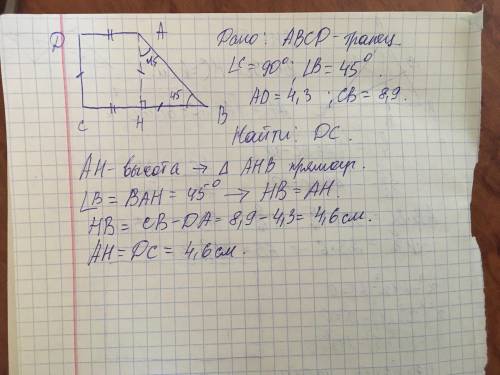 D A
45
45
C H B
Дано: ABCD-трапец
∟C = 90°; ∟B = 45°
AD = 4,3 ; CB = 8,9.
Найти: DC.
AH-высота → Δ AHB прямоуг.
∟B = BAH = 45° → HB = AH
HB = CB-DA = 8,9-4,3 = 4,6 см.
AH = DC = 4,6 см.